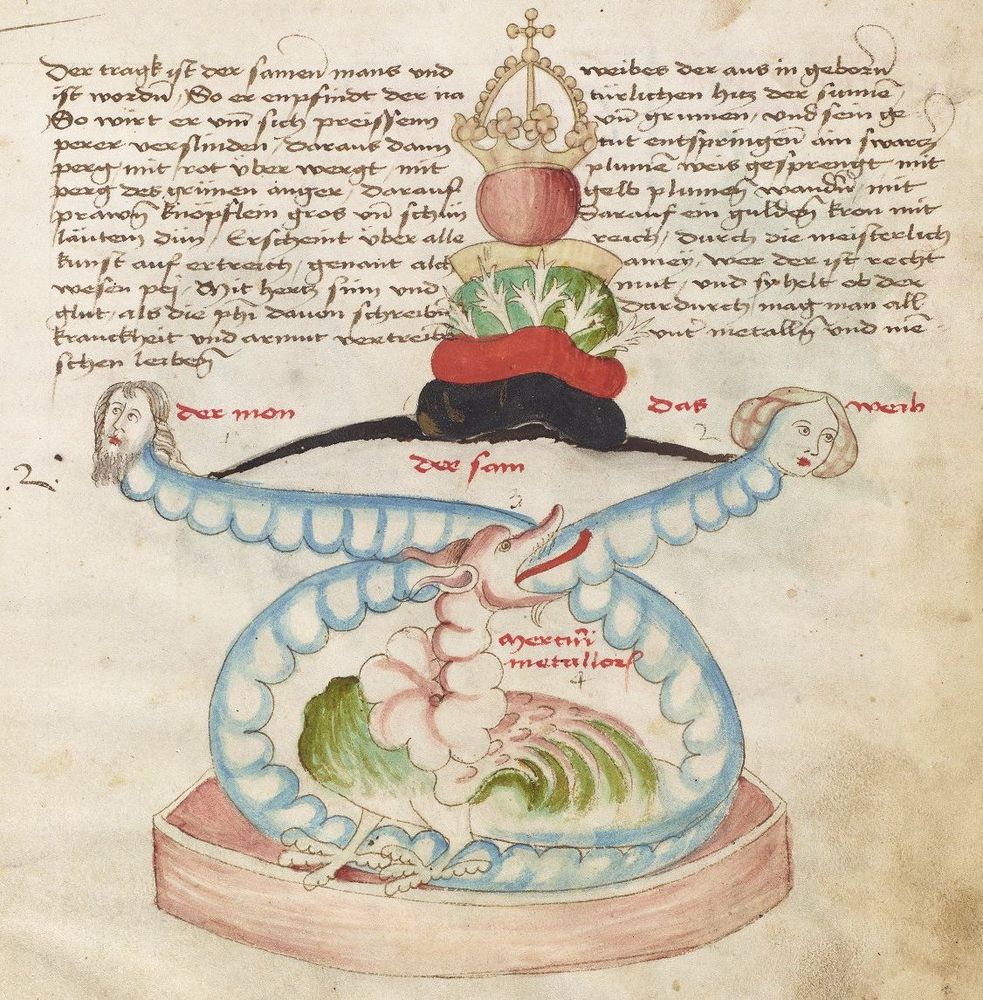 Der tragk ist der samen mans und weibes der aus in geborn̄
ist wordn̄, So er enpfindt der na türlichen hitz der sunnē
So wirt er vm̄ sich preissenn vn̄ grimen, und sein ge
perer verslinden, daraus dann tut entspringen̄ ain swarcz
perg mit rot über wergt, mit plumen weis gesprengt mit
perg des grünen anger, darauf gelb plumen̄ mit
prawn̄ knöpflein gros vn̄ schün darauf ein guldēn̄ kron mit
läutem dün, Erscheint über alle reich, durch die meisterlich
kunst auf ertreich, genant alch amey, wer der ist recht
wesen pej, Mit hertz sinn und mut, und sy helt ob der
glut, als die ph̄i dauon schreibn̄ dardurch mag man all
kranckheit und armut vertreibn̄ metalln̄ und me
schen leiben̄
der mon
Das weib
1
2
der sam
2.
3
Mercūri
metallor
4